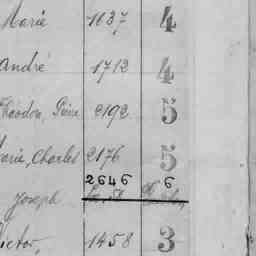 Marie 1637 4
André 1712 4
Théodore, Pierre 2192 5
Marie, Charles 2176 5
2646 6
Joseph
Victor, 1458 3